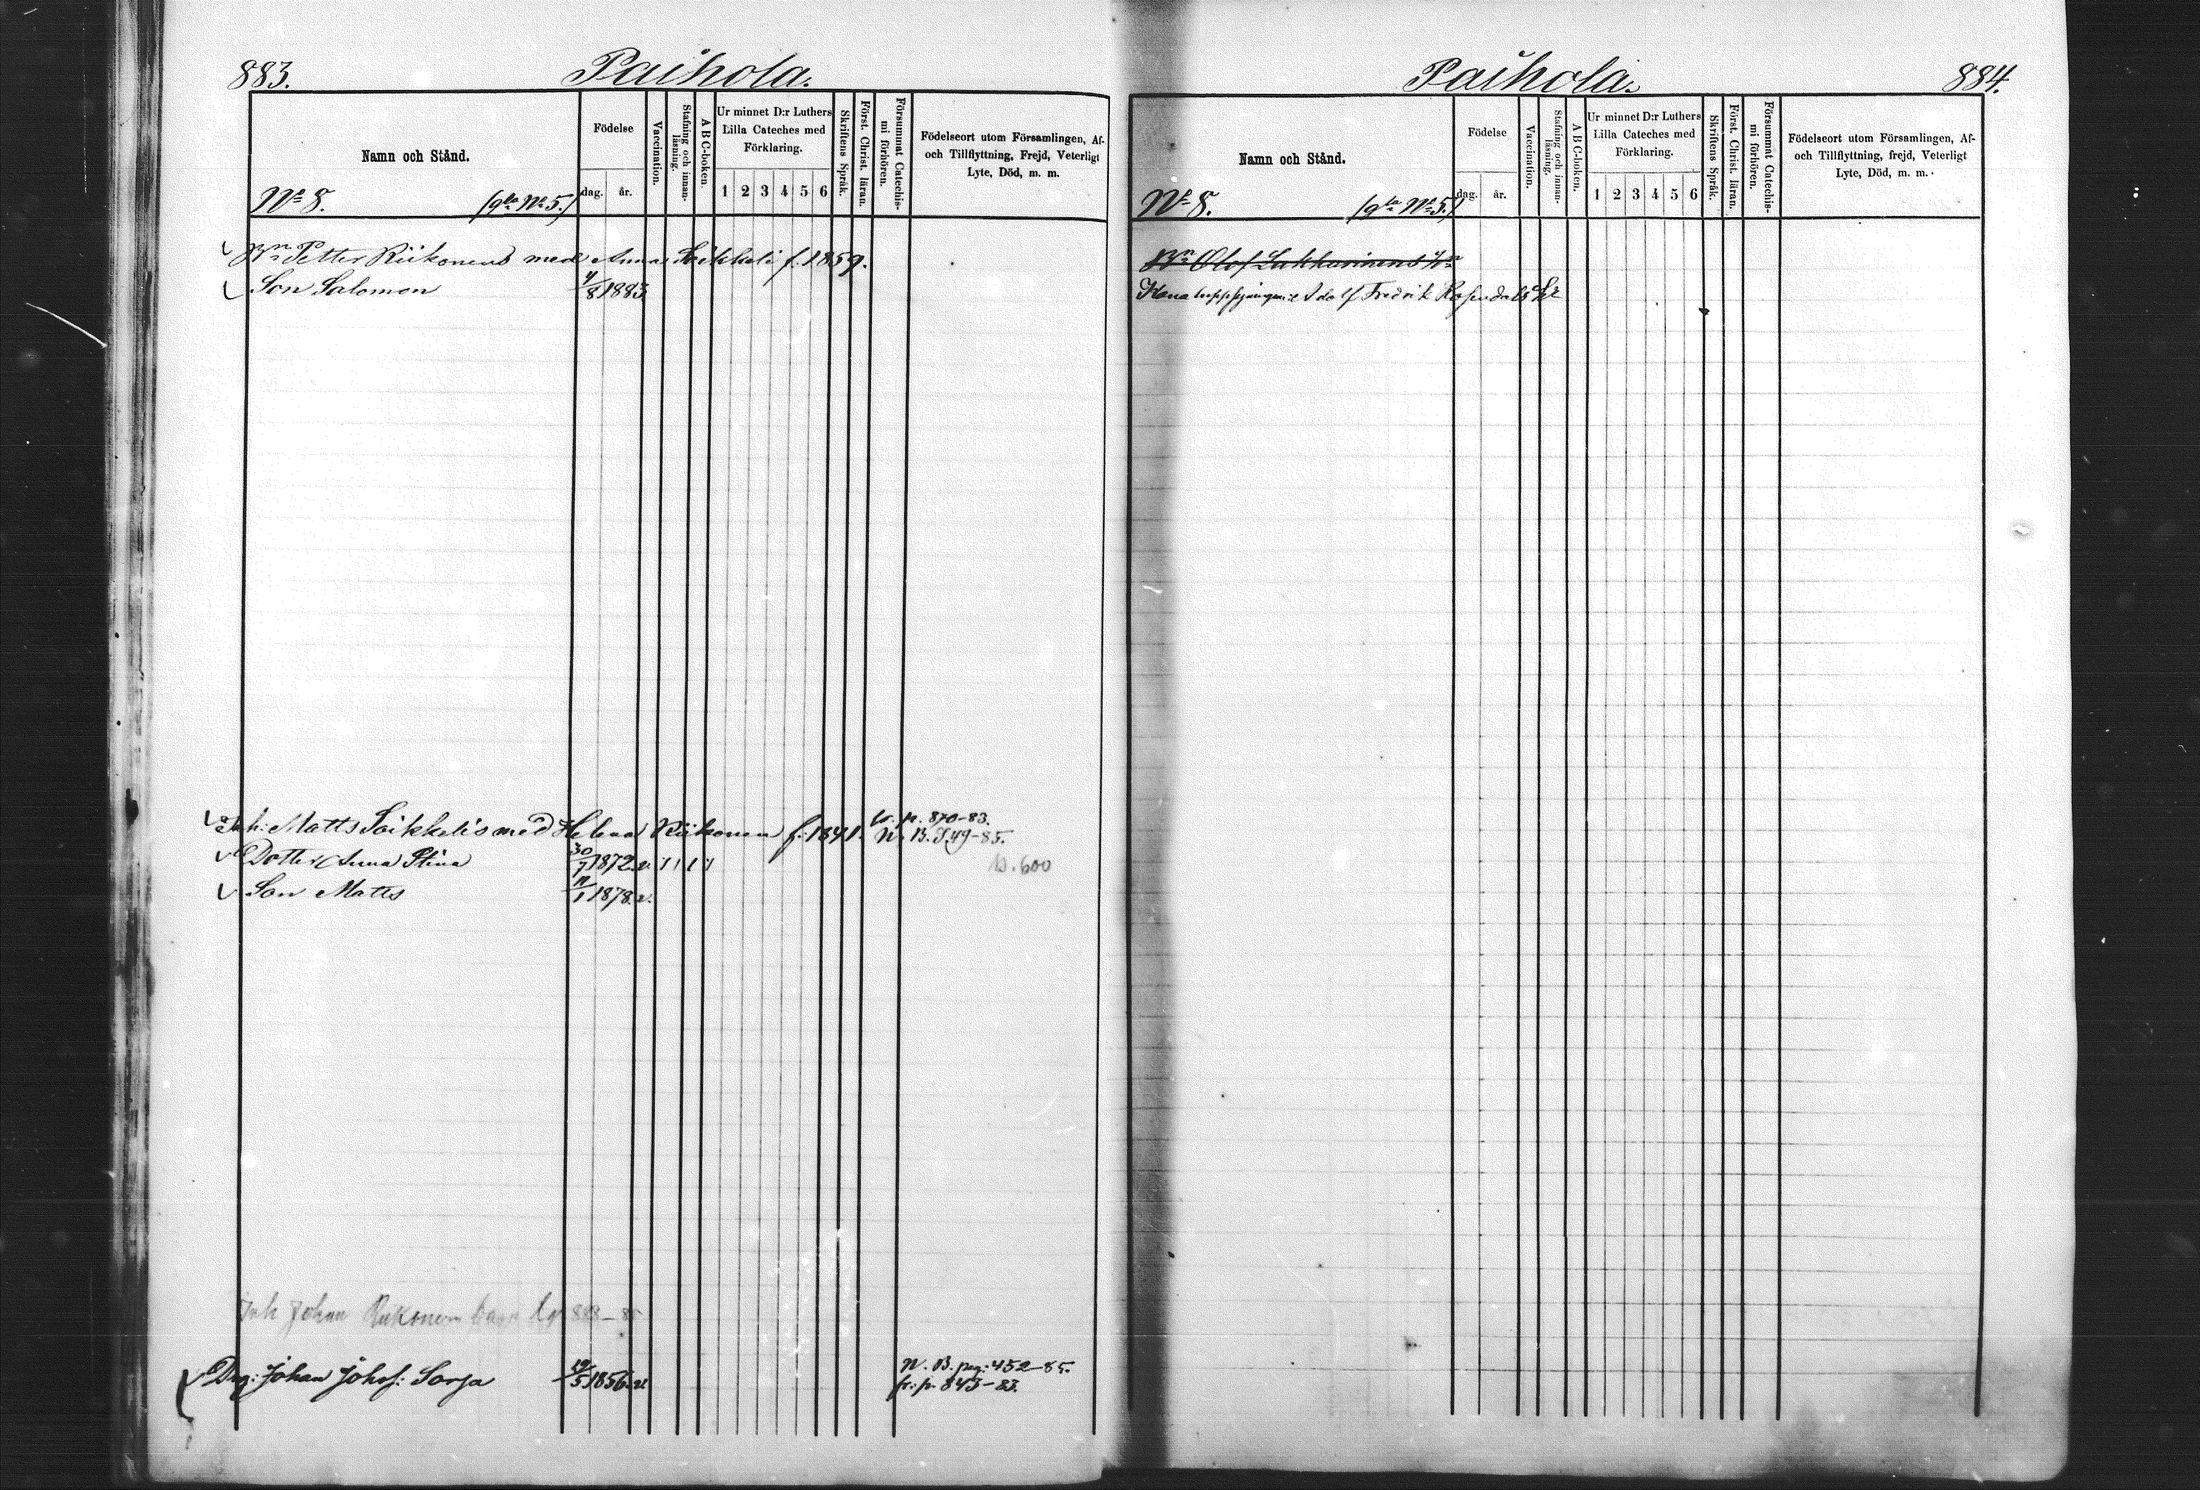 883.
Paihola.
Namn och Stånd.
Födelse
dag. år.
Vaccination.
Stafning och innanläsning.
A B C-boken.
Ur minnet D:r Luthers
Lilla Cateches med
Förklaring.
1 2 3 4 5 6
Skriftens Språk.
Först. Christ. läran.
Försummat Catechismi förhören.
Födelseort utom Församlingen, Af-
och Tillflyttning, Frejd, Veterligt
Lyte, Död, m. m.
Nº 8. (gla Nº 5.)
Bn Petter Riikonens med Anna Soikkeli f. 1859.
Son Salomon 4/8 1883
fr. p. 870-83.
Inh: Matts Soikkelis med Helena Riikonen f: 1841. N. B. S. 49-85.
Dotter Anna Stina 30/7 1872. v.
s. 600
Son Matts 11/1 1878. v.
Inh Johan Riikonens barn 888-85
N. B. pag: 452-85.
Drg: Johan Johsf: Sorja 19/5 1856. v.
fr. p. 843-83.
Paihola.
884.
Namn och Stånd.
Födelse
dag. år.
Vaccination.
Stafning och innanläsning.
A B C-boken.
Ur minnet D:r Luthers
Lilla Cateches med
Förklaring.
1 2 3 4 5 6
Skriftens Språk.
Först. Christ. läran.
Försummat Catechismi förhören.
Födelseort utom Församlingen, Af-
och Tillflyttning, frejd, Veterligt
Lyte, Död, m. m.
Nº 8. (gla Nº 5.)
Bn Olof Lukkarinens
Adolf Fredrik Rosendals